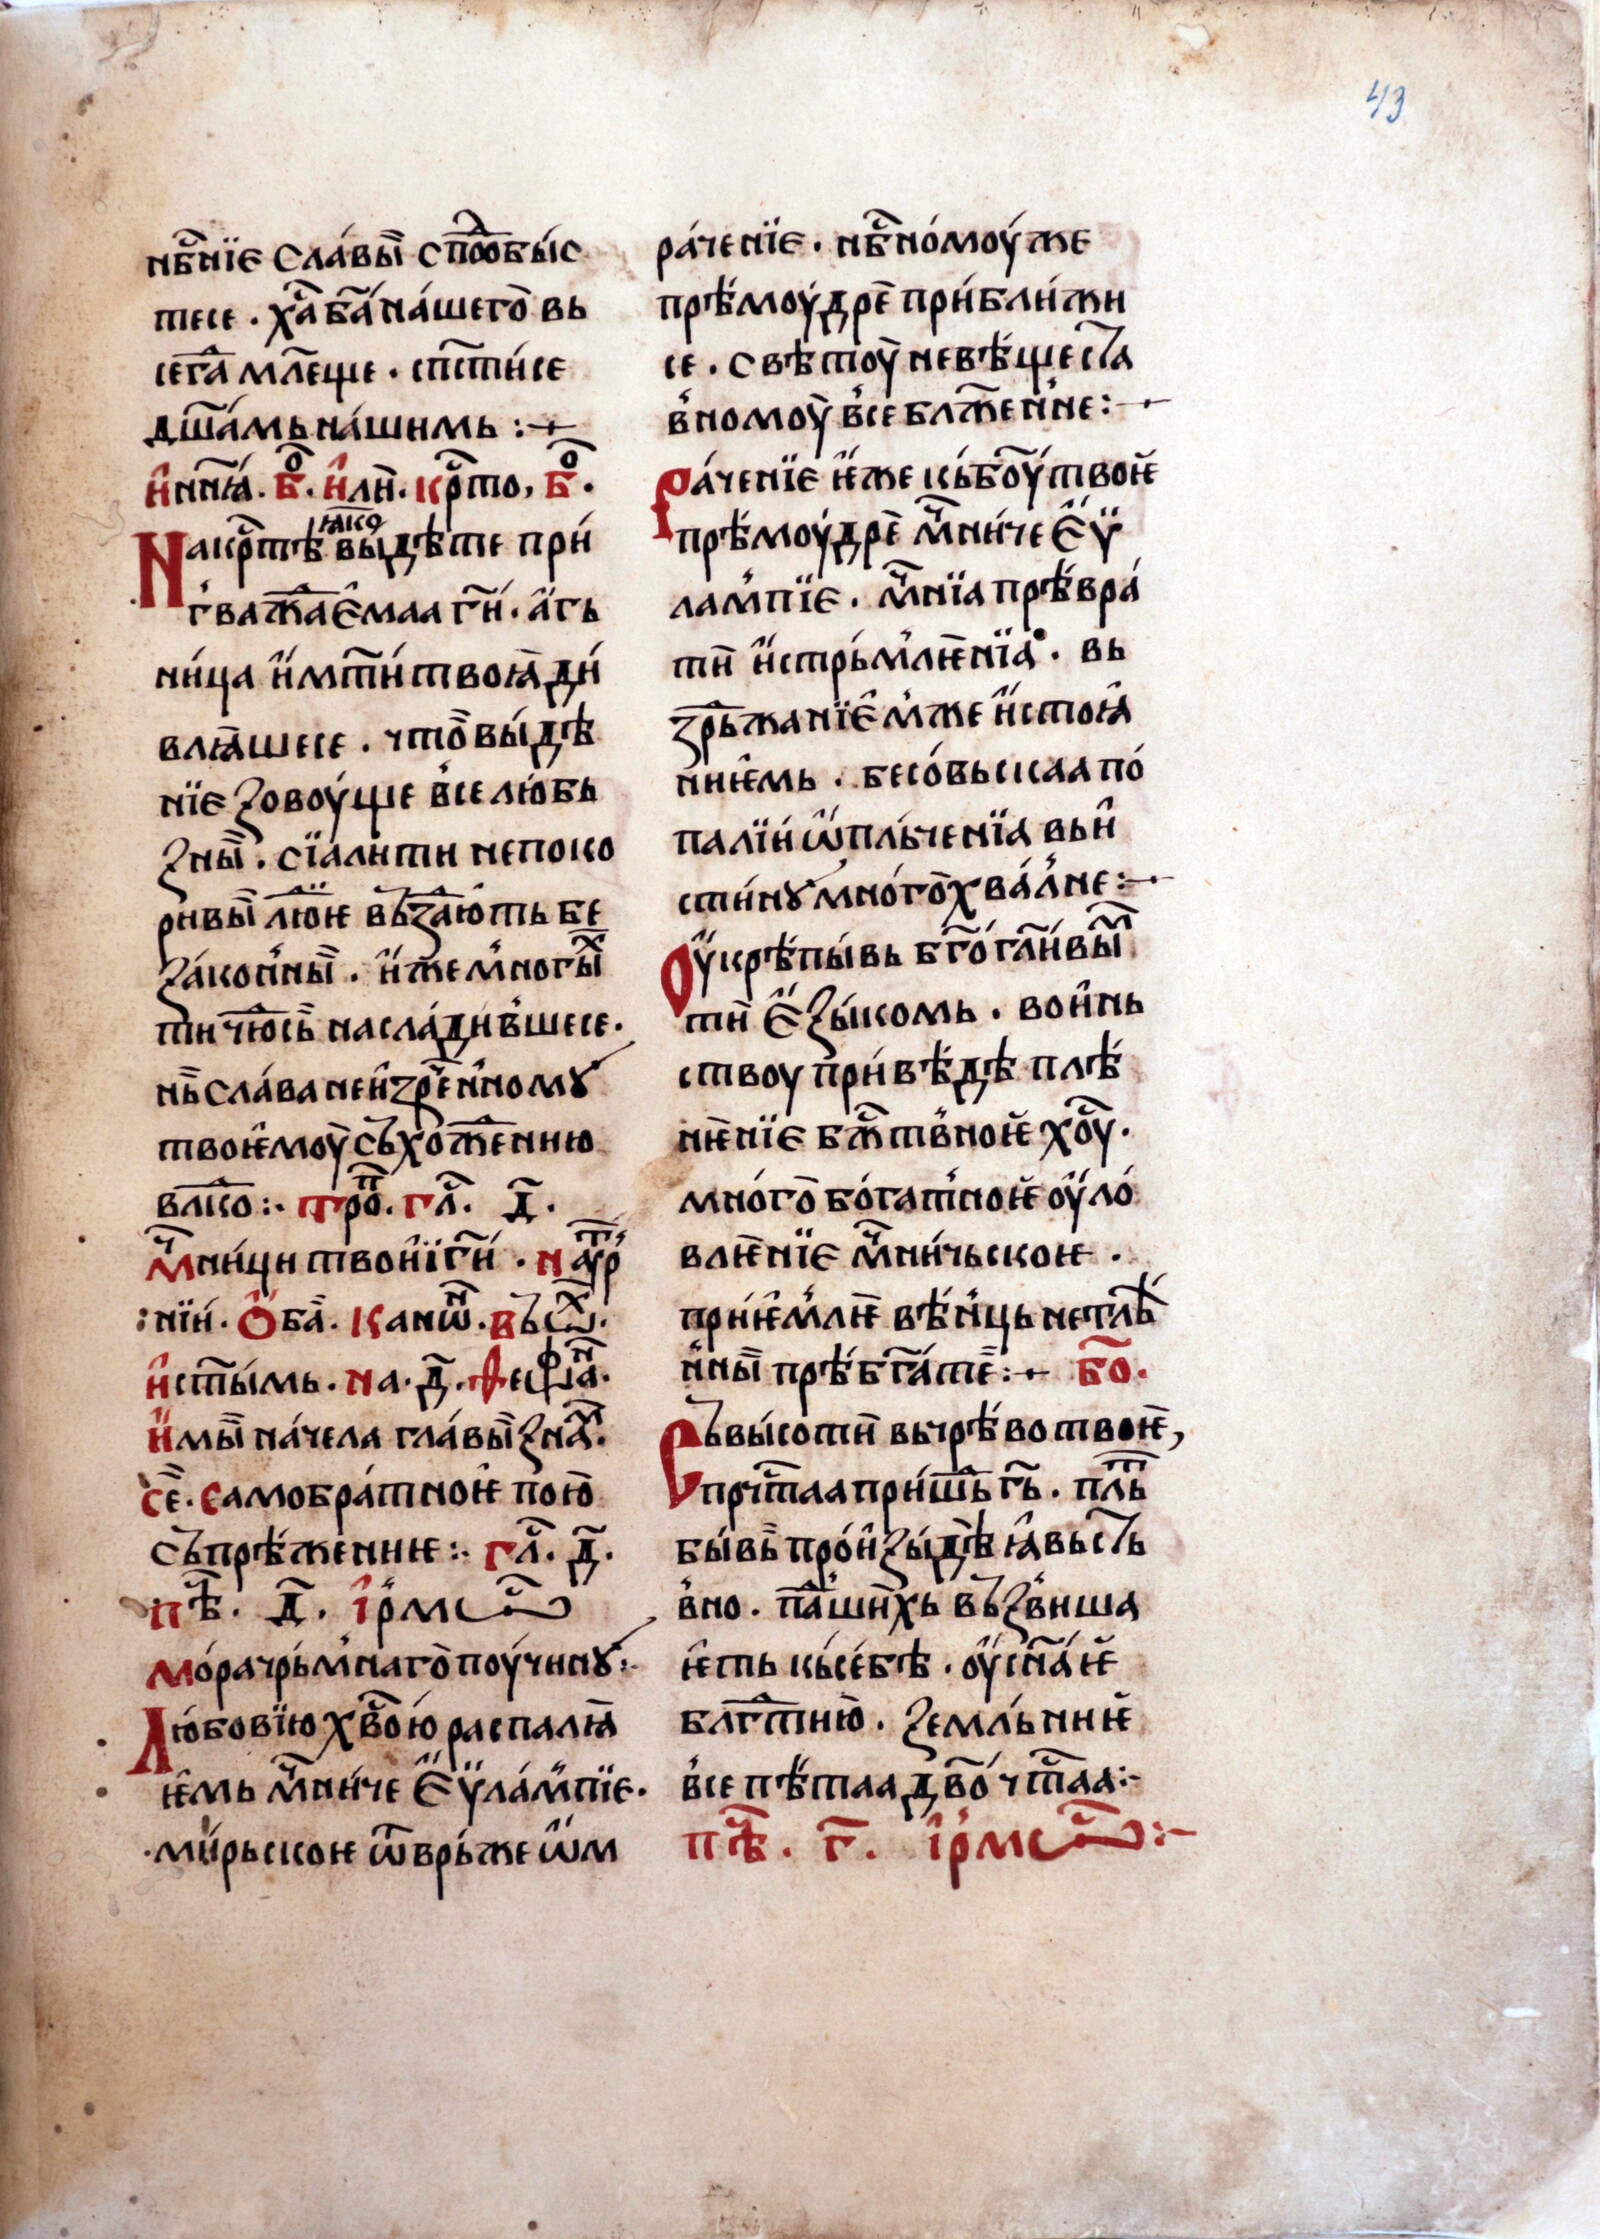 43
нб҃нїе сла́вы̏ спⷣобы́с
тесе . ха҃ ба҃ на́шего̀ вь
сегда̀ мл҃еще . спⷭ҇ти́се
дш҃амь на́шимь :~
и҆ нн҃ꙗ́ . бⷪ҇ . и҆лѝ . крⷭ҇то , бⷪ҇ .
На крⷭ҇тѣ ꙗко вы́дѣте при́
гважⷣае҆маа гⷭ҇и́ . а҆́гь
ни́ца и҆ мт҃и́ твоꙗ̀ ди́
влꙗ́шесе . что̀ вы́дѣ
нїе зовоу́ще все лю́бь
зны̏ . сїа ли ти непоко
ривы̏ лю́дїѥ вьздаю́ть бе
за́конны̏ . и҆́же мно́гыⷯ
ти чю҃сь̀ насла́дившесе .
нь̀ сла́ва неи҆зрⷱ҇е́нному
твоѥ҆моу̀ съхожⷣе́нию
влⷣко :· трⷪ҇ⷫ . глⷭ҇ . д҃ .
Мⷱ҇ни́ци твои҆ї гⷭ҇и́ . на ѹ҆трⷬ
:нїи́ . О҆ба̀ . канѡⷩ҇ . въѡⷯ .
и҆стⷪ҇ы́мь . на . д҃ . Ѳеѡфаⷩ .
и҆́мы̏ на́чела гла́вы̏ знаⷨ .
се̏ . самобра́тноѥ пою̀
съпрѣ́жениѥ :· глⷭ҇ . д҃ .
пѣⷭ҇ . д҃ . і҆рмѡⷭ҇
мо́ра чрь́мнаго̀ поу́чинꙋ :·
Лю́бовїю хв҃о́ю распалꙗ̀
ѥ҆мь мⷱ҇ни́че Е҆ѵ̈ла́мпїе .
·ми́рьскоѥ ѿврь́же ѡ҆м
ра́ченїе . нб҃но́моу́же
прѣ́моу́дре̏ при́ближи
се . свѣтоу̀ невѣ́щестⸯ
вномоу̀ все блⷤе́нне :~
Ра́ченїе и҆́же кь́ боу҃́ твоѥ̀
прѣ́моу́дре̏ мⷱ҇ни́че Е҆ѵ̈
ла́мпїе . мⷱ҇нїа прѣ́вра́
тѝ и҆́стрьмлѥ̀нїа . вь
здрь́жанїе҆мже и҆стоꙗ҆
нни҆ѥ҆мь . бесо́вьскаа по́
пали́и ѡ҆плъ́ченїа вьи҆
сти́нꙋ мно́го̀ хва́лне :~
Оу҆крѣ́пы́вь бг҃огл҃и́выⷨ
тѝ е҆зы́комь . вои҆нь
ствоу при́вѣ́дѣ плѣ́
нѥ̀нїе бжⷭ҇твноѥ̀ хⷭ҇оу́ .
мно́го̀ бо́гатноѥ̀ оу҆ло́
влѥ̀нїе мⷱ҇ни́чьскоѥ .
при́ѥ҆млѥ̀ вѣ́нць нетлѣ
нны̏ прѣ́бг҃ате̏ :~ бⷪ҇ .
Съвы́соти̏ вьчрѣ́во твоѥ̀,
прⷱ҇таа при́шь́ гь̏ . пльⷮ
бы́вь̀ прои҆зы́дѣ ꙗ҆вьстⸯ
вно . па́шихь възвиша
ѥ҆сть кь́ себѣ̀ . оу҆сн҃а́ѥ̀
блгⷣтию̀ . земль́ниѥ̀
все пѣ́таа дв҃о́ чⷭ҇таа :·
пѣⷭ҇ . г҃ . і҆рмѡⷭ҇ :~